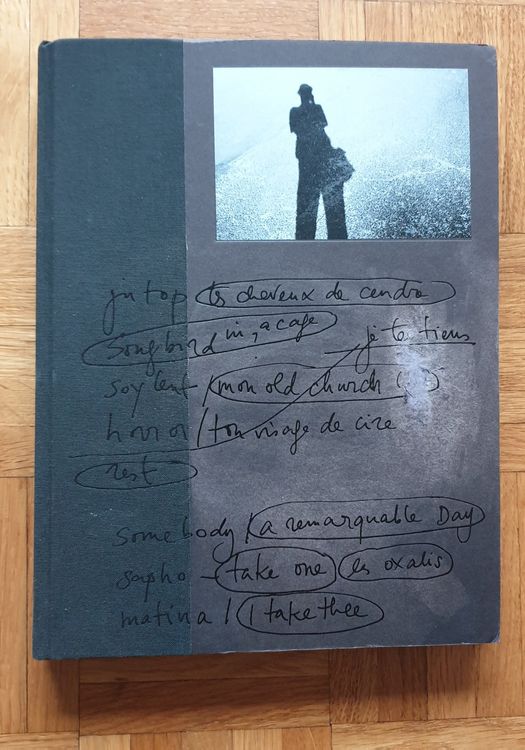 tes cheveux de cendre
songbird in a cage
je te tiens
soylent / mon old church (..)
horror / ton visage de cire
rest
somebody / a remarquable Day
sapho - take one les oxalis
matina / I take thee